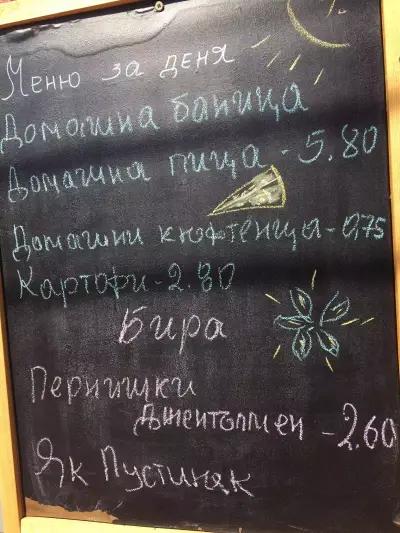 Меню за деня
Домашна баница
Домашна пица - 5.80
Домашни кюфтенца - 0,75
Картофи - 2.80
Бира
Пернишки
Джентълмен - 2.60
Як Пустиняк